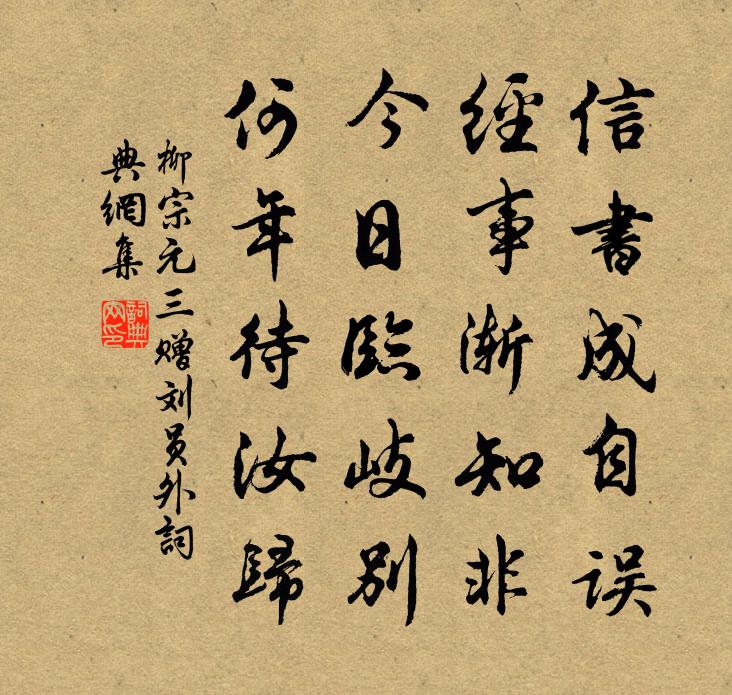 信書成自误
經事渐知非
今日臨岐别
何年待汝歸
柳宗元三赠刘员外詞
典網集
詞典网印